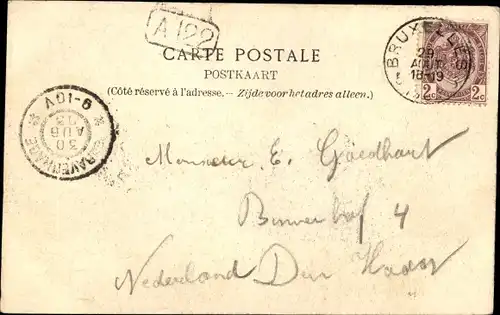 A 122
CARTE POSTALE
POSTKAART
(Côté réservé à l'adresse.— Zijde voor het adres alleen.)
BRUXELLES
29
AOUT
18-19
2c 2c
'S GRAVENHAGE
30
AUG
03
Monsieur E. Goedhart
Binnenhof 4
Nederland Den Haag